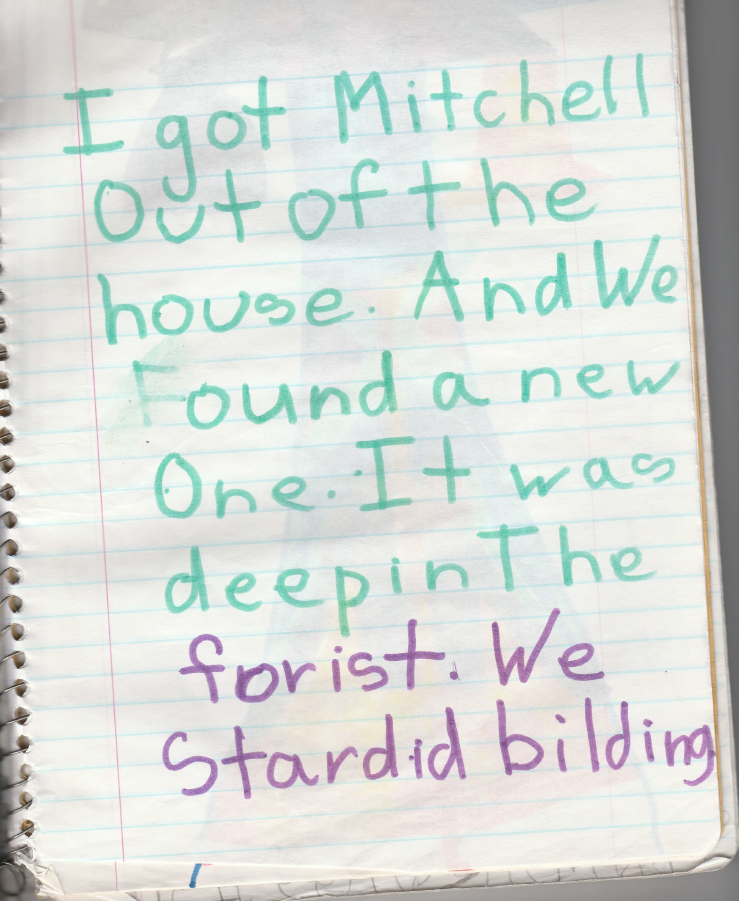 I got Mitchell
Out of the
house. And We
Found a new
One. It was
deep in The
forist. We
Stardid bilding